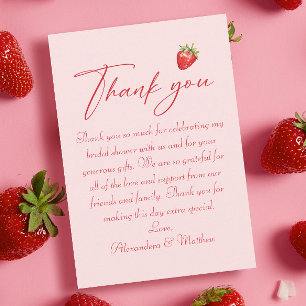 Thank you
Thank you so much for celebrating my
bridal shower with us and for your
generous gifts. We are so grateful for
all of the love and support from our
friends and family. Thank you for
making this day extra special.
Love,
Alexandera & Matthew